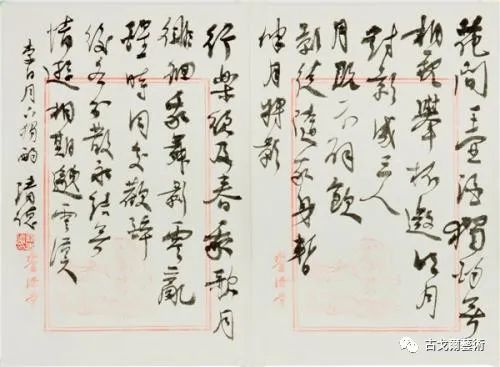 花間一壺酒獨酌無
相親舉杯邀明月
對影成三人
月既不解飲
影徒隨我身暫
伴月將影
行樂須及春我歌月
徘徊我舞影零亂
醒時同交歡醉
後各分散永結無
情遊相期邈雲漢
李白月下獨酌
古戈爾藝術